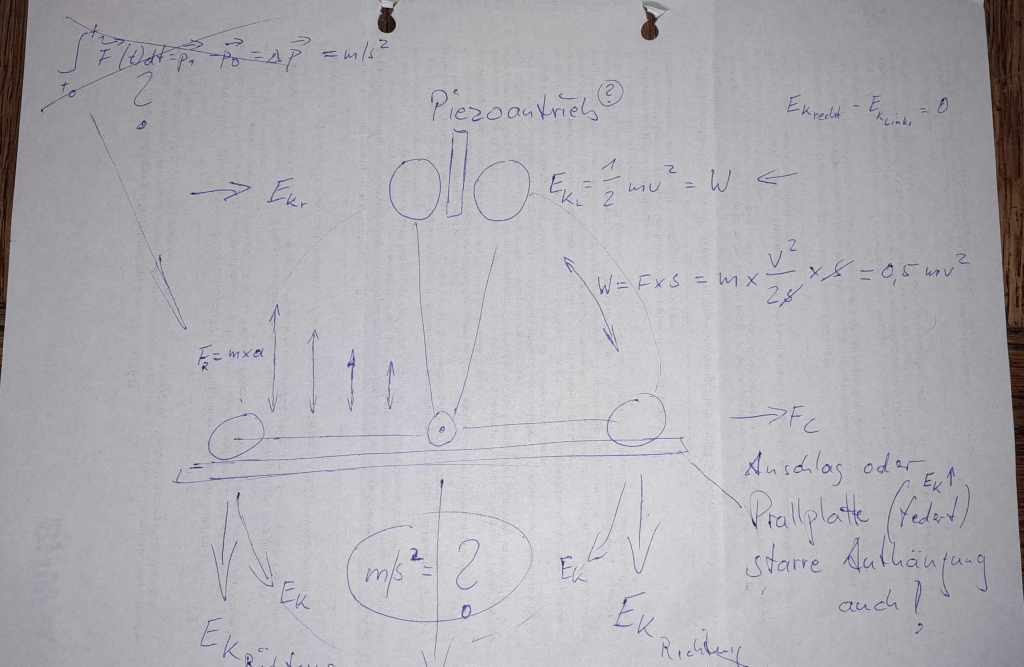 ∫ t₀ t₁ F⃗ (t)dt = p⃗₁ p⃗₀ = Δp⃗ = m/s²
?
Piezoantrieb ?
E_K recht - E_K Links = 0
→ E_Kr
E_KL = 1/2 mv² = W ←
W = F x s = m x v²/2s x s = 0,5 mv²
F_R = m x a
→ F_C
Anschlag oder
E_K ↑
Prallplatte (federt)
starre Aufhängung
auch !
m/s² = ?
E_K
E_K
E_K Richtung
E_K Richtung